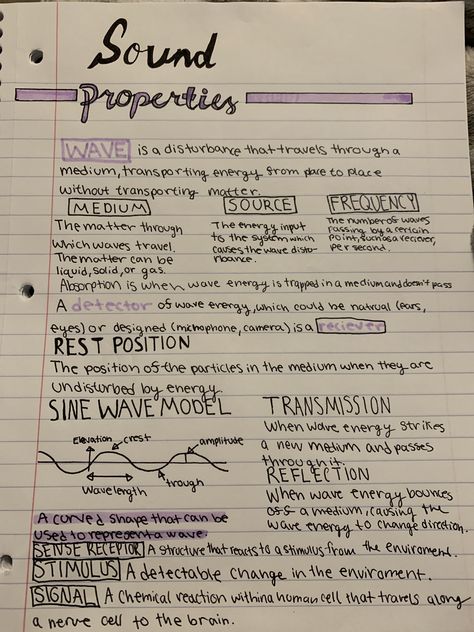 Sound
Properties
WAVE is a disturbance that travels through a
medium, transporting energy from place to place
without transporting matter.
MEDIUM
The matter through
which waves travel.
The matter can be
liquid, solid, or gas.
SOURCE
The energy input
to the system which
causes the wave distu-
rbance.
FREQUENCY
The number of waves
passing by a certain
point, such as a reciever,
per second.
Absorption is when wave energy is trapped in a medium and doesn't pass
A detector of wave energy, which could be natrual (ears,
eyes) or designed (microphone, camera) is a reciever
REST POSITION
The position of the particles in the medium when they are
undisturbed by energy.
SINE WAVE MODEL
Elevation
crest
amplitude
Wavelength
trough
A curved shape that can be
used to represent a wave.
TRANSMISSION
When wave energy strikes
a new medium and passes
through it.
REFLECTION
When wave energy bounces
off a medium, causing the
wave energy to change direction.
SENSE RECEPTOR A structure that reacts to a stimulus from the enviroment.
STIMULUS A detectable change in the enviroment.
SIGNAL A chemical reaction within a human cell that travels along
a nerve cell to the brain.